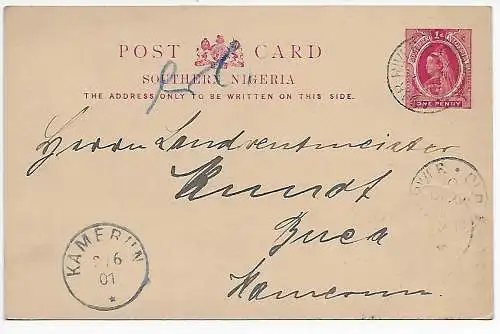 POST CARD
SOUTHERN NIGERIA
THE ADDRESS ONLY TO BE WRITTEN ON THIS SIDE.
ONE PENNY
Herrn Landrentmeister
Kundt
Buea
Kamerun
KAMERUN
2/6
01